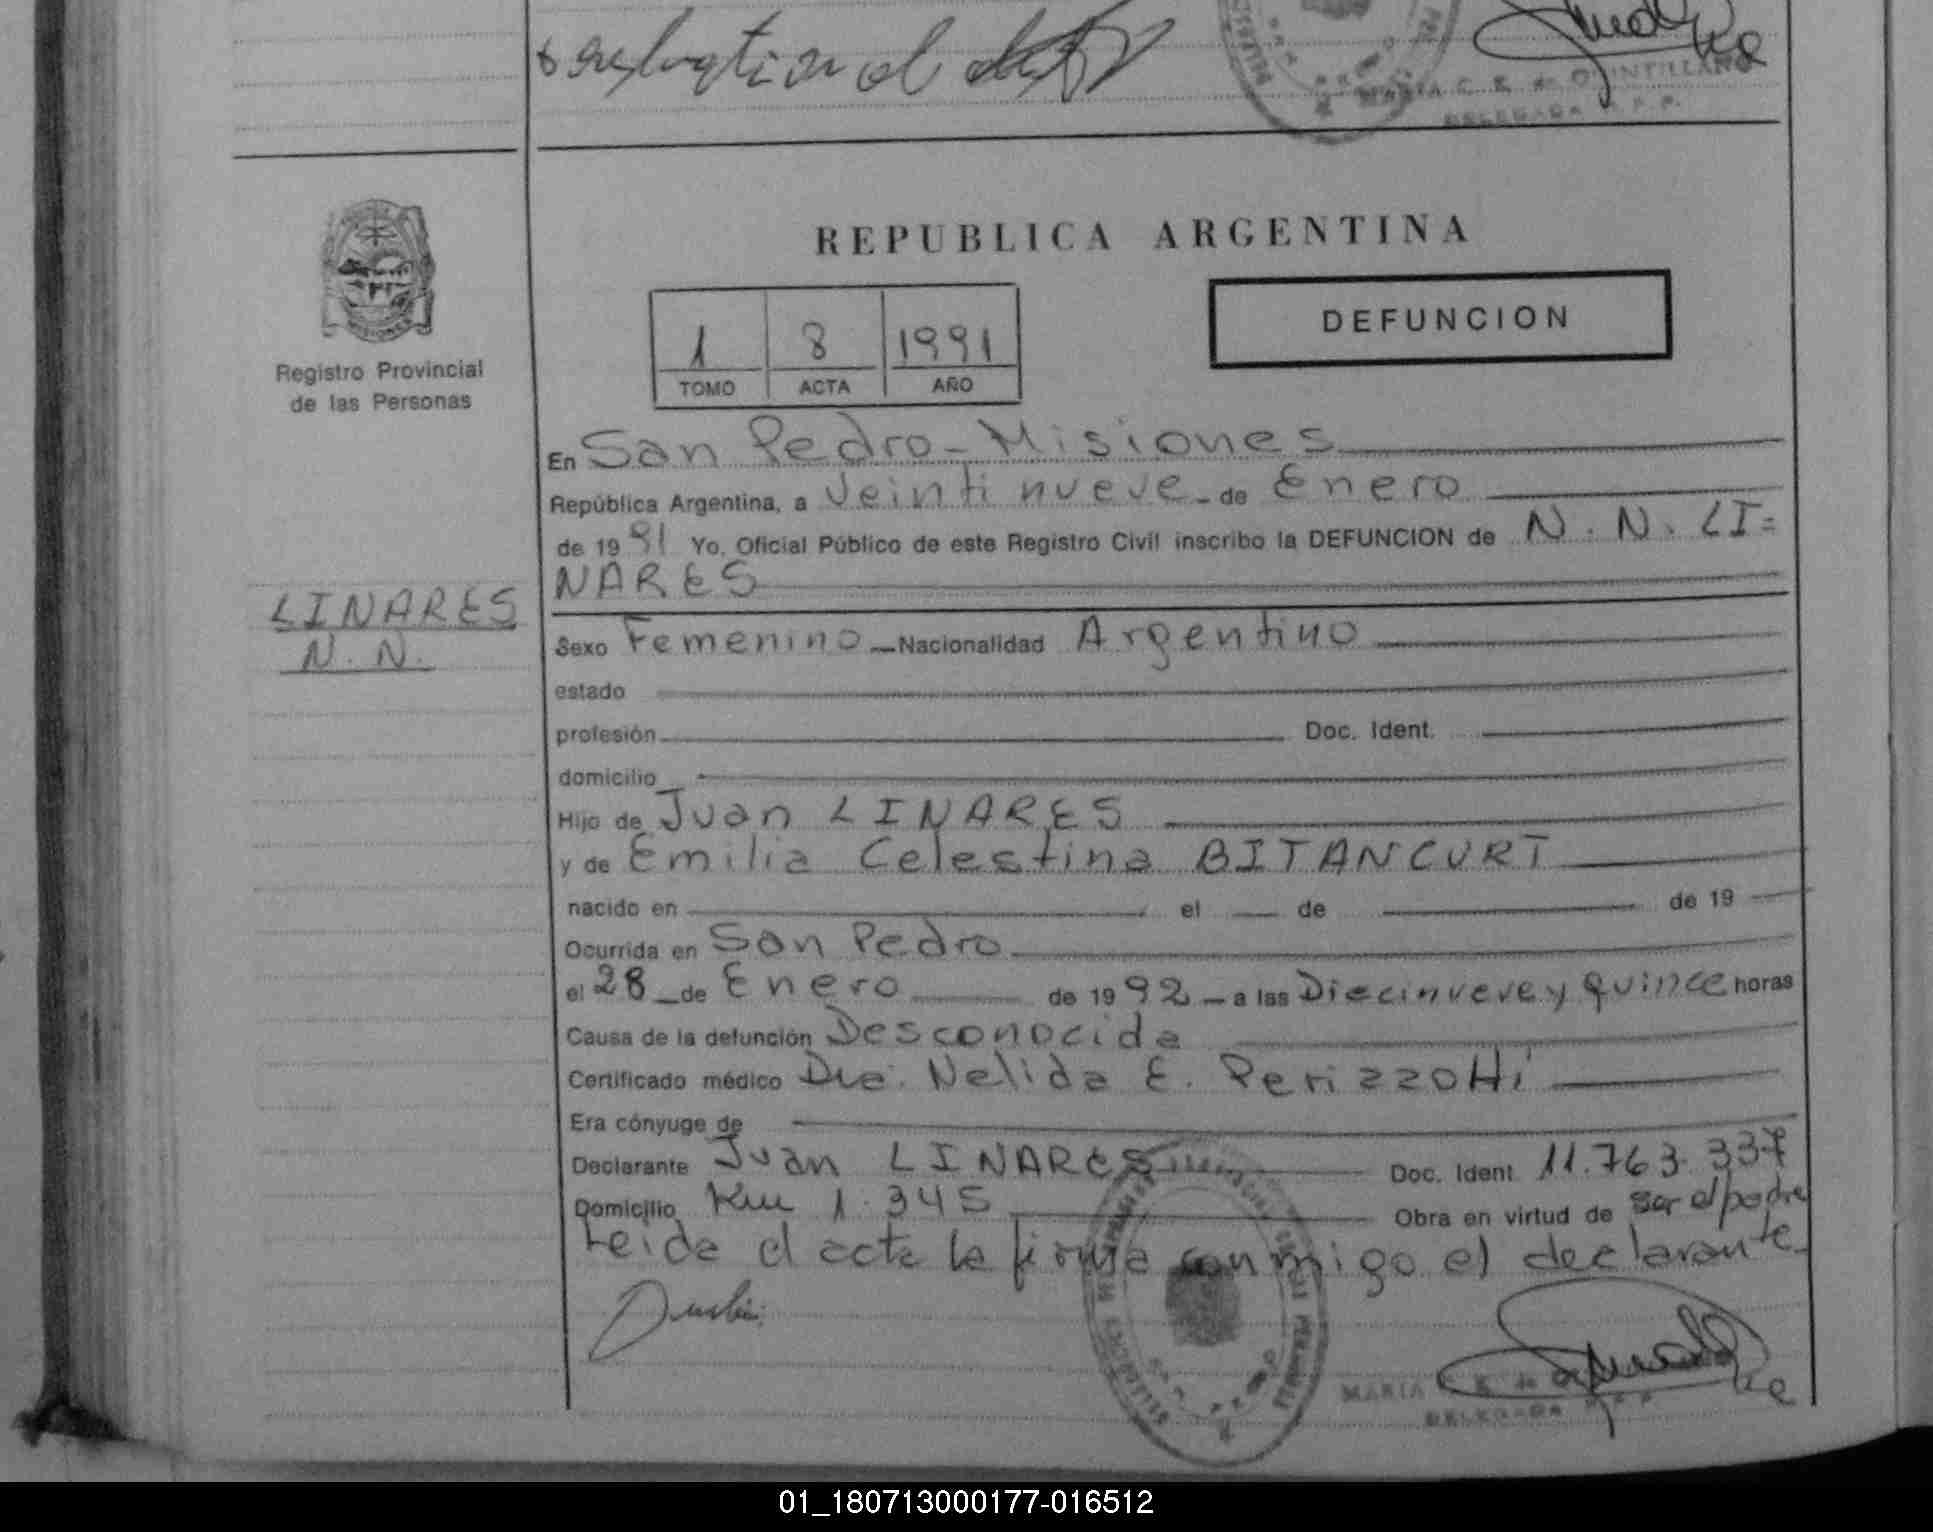 MARIA C. R. de QUINTILLANO
DELEGADA R. P. P.
REPUBLICA ARGENTINA
DEFUNCION
1 8 1991
TOMO ACTA AÑO
MISIONES
Registro Provincial
de las Personas
En San Pedro - Misiones
República Argentina, a Veintinueve - de Enero
de 1991 Yo, Oficial Público de este Registro Civil inscribo la DEFUNCION de N. N. LI=
NARES
LINARES
N. N.
Sexo Femenino - Nacionalidad Argentino
estado
profesión Doc. Ident.
domicilio
Hijo de Juan LINARES
y de Emilia Celestina BITANCURT
nacido en el de de 19
Ocurrida en San Pedro
el 28 de Enero de 1992 - a las Diecinueve y quince horas
Causa de la defunción Desconocida
Certificado médico Dra. Nelida E.
Era cónyuge de
Declarante Juan LINARES Doc. Ident. 11.763.337
Domicilio Km 1.345 Obra en virtud de ser el padre
Leida el acta la firma conmigo el declarante
MARIA C. R. de
DELEGADA R. P. P.
01_180713000177-016512